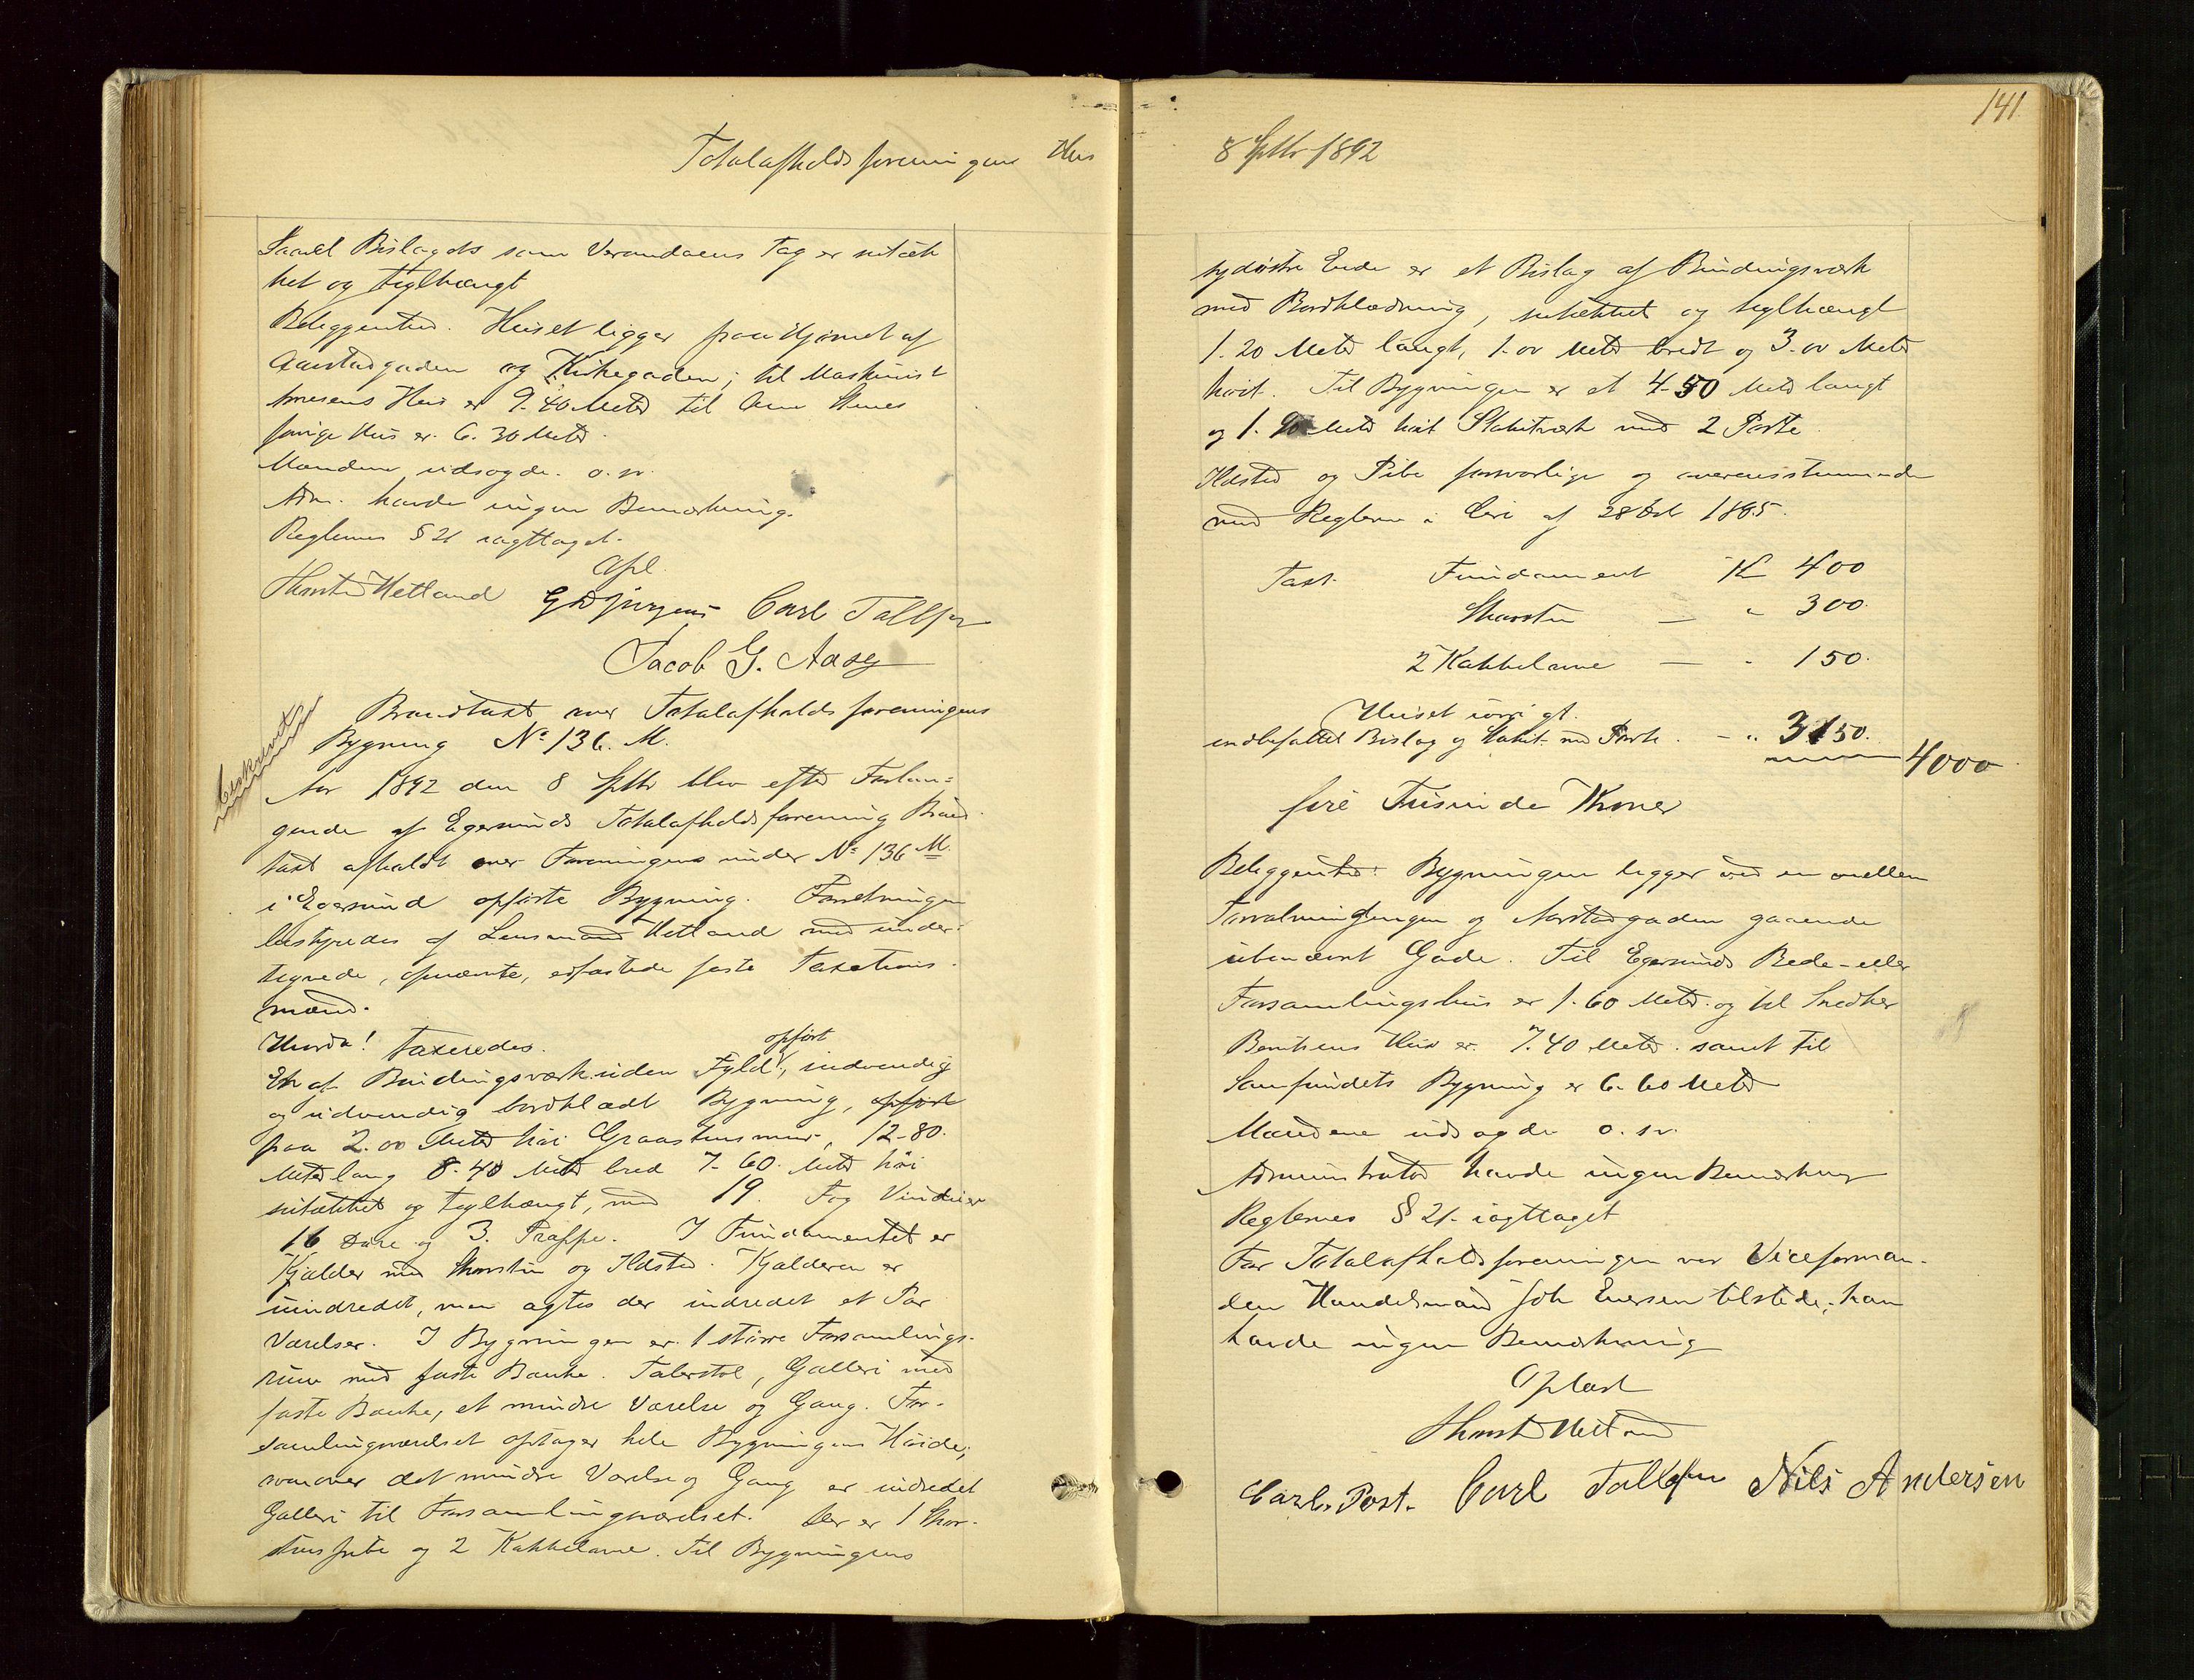 Totalafholdsforeningens Hus
Saavel Bislagets som Verandaens Tag er sutæk
ket og teglhængt
Beliggenhed. Huset ligger paa Hjørnet af
Aarstadgaden og Kirkegaden; til Maskinist
Hus er 9.40 Meter til
Hus er 6.30 Meter.
Mændene udsagde o.sv.
Adm. havde ingen Bemærkning.
Reglernes § 21 iagttaget.
Opl.
Thorst Hetland G W Jürgens Carl Tollefsen
Jacob G. Aase
Beskrevet
Brandtaxt over Totalafholdsforeningens
Bygning No 136. M.
Aar 1892 den 8 Septbr blev efter Forlan=
gende af Egersunds Totalafholdsforening Brand
taxt afholdt over Foreningens under No 136 M
i Egersund opførte Bygning. Forretningen
bestyredes af Lensmand Hetland med under=
tegnede, opnævnte, edfæstede faste Taxations-
mænd.
Hvorda! taxeredes.
En af Bindingsværk uden Fyld opført, indvendig
og udvendig bordklædt Bygning, opført
paa 2.00 Meter høi Graastensmur, 12-80.
Meter lang 8.40 Meter bred 7.60. Meter høi
sutækket og teglhængt, med 19. Fag Vinduer
16 Døre og 3. Trappe. I Fundamentet er
Kjælder med Skorsten og Ildsted. Kjælderen er
uindredet, men agtes der indredet et Par
Værelser. I Bygningen er 1 større Forsamlings-
rum med faste Bænke. Talerstol, Galleri med
faste Bænke, et mindre Værelse og Gang. For-
samlingsværelset optager hele Bygningens Høide,
ovenover det mindre Værelse og Gang er indredet
Galleri til Forsamlingsværelset. Der er 1 Skor-
stenspibe og 2 Kakkelovne. Til Bygningens
141
8 Septbr 1892
sydøstre Ende er et Bislag af Bindingsværk
med Bordklædning, sutækket og teglhængt
1.20 Meter langt, 1.00 Meter bredt og 3.00 Meter
høit. Til Bygningen er et 4-50 Meter langt
og 1.90 Meter høit Stakitværk med 2 Porte.
Ildsted og Pibe forsvarlige og overensstemmende
med Reglerne i Circ af 28 Oct 1865.
Taxt. Fundament K 400
Skorsten — " 300.
2 Kakkelovne — " 150.
Huset iøvrigt.
indbefattet Bislag og Stakit med Porte. — " 3150.
4000
fire Tusinde Kroner
Beliggenhed: Bygningen ligger ved en mellem
og Aarstadgaden gaaende
ubenævnt Gade. Til Egersunds Bede- eller
Forsamlingshus er 1.60 Meter og til Snedker
Berntsens Hus er 7.40 Meter samt til
Samfundets Bygning er 6.60 Meter
Mændene udsagde o. sv.
Administrator havde ingen Bemærkning
Reglernes § 21. iagttaget
For Totalafholdsforeningen var Viceforman-
den Handelsmand Joh Enersen tilstede; han
havde ingen Bemærkning
Oplæst
Thorst Hetland
Carl. Post. Carl Tollefsen Nils Andersen